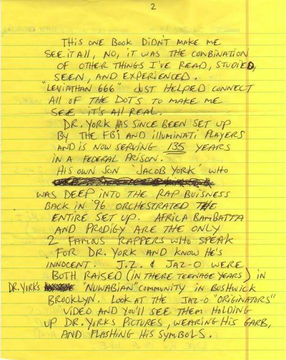 2
THIS ONE BOOK DIDN'T MAKE ME
SEE IT ALL, NO, IT WAS THE COMBINATION
OF OTHER THINGS I'VE READ, STUDIED,
SEEN, AND EXPERIENCED.
"LEVIATHAN 666" JUST HELPED CONNECT
ALL OF THE DOT'S TO MAKE ME
SEE IT'S ALL REAL.
DR. YORK HAS SINCE BEEN SET UP
BY THE FBI AND ILLUMINATI PLAYERS
AND IS NOW SERVING 135 YEARS
IN A FEDERAL PRISON.
HIS OWN SON "JACOB YORK" WHO
WAS DEEP INTO THE RAP BUISNESS
BACK IN '96 ORCHESTRATED THE
ENTIRE SET UP. AFRICA BAMBATTA
AND PRODIGY ARE THE ONLY
2 FAMOUS RAPPERS WHO SPEAK
FOR DR. YORK AND KNOW HE'S
INNOCENT. J.Z. & JAZ-O WERE
BOTH RAISED (IN THERE TEENAGE YEARS) IN
DR. YORK'S "NUWABIAN" COMMUNITY IN BUSHWICK
BROOKLYN. LOOK AT THE JAZ-O "ORIGINATORS"
VIDEO AND YOU'LL SEE THEM HOLDING
UP DR. YORK'S PICTURES, WEARING HIS GARB,
AND FLASHING HIS SYMBOLS.